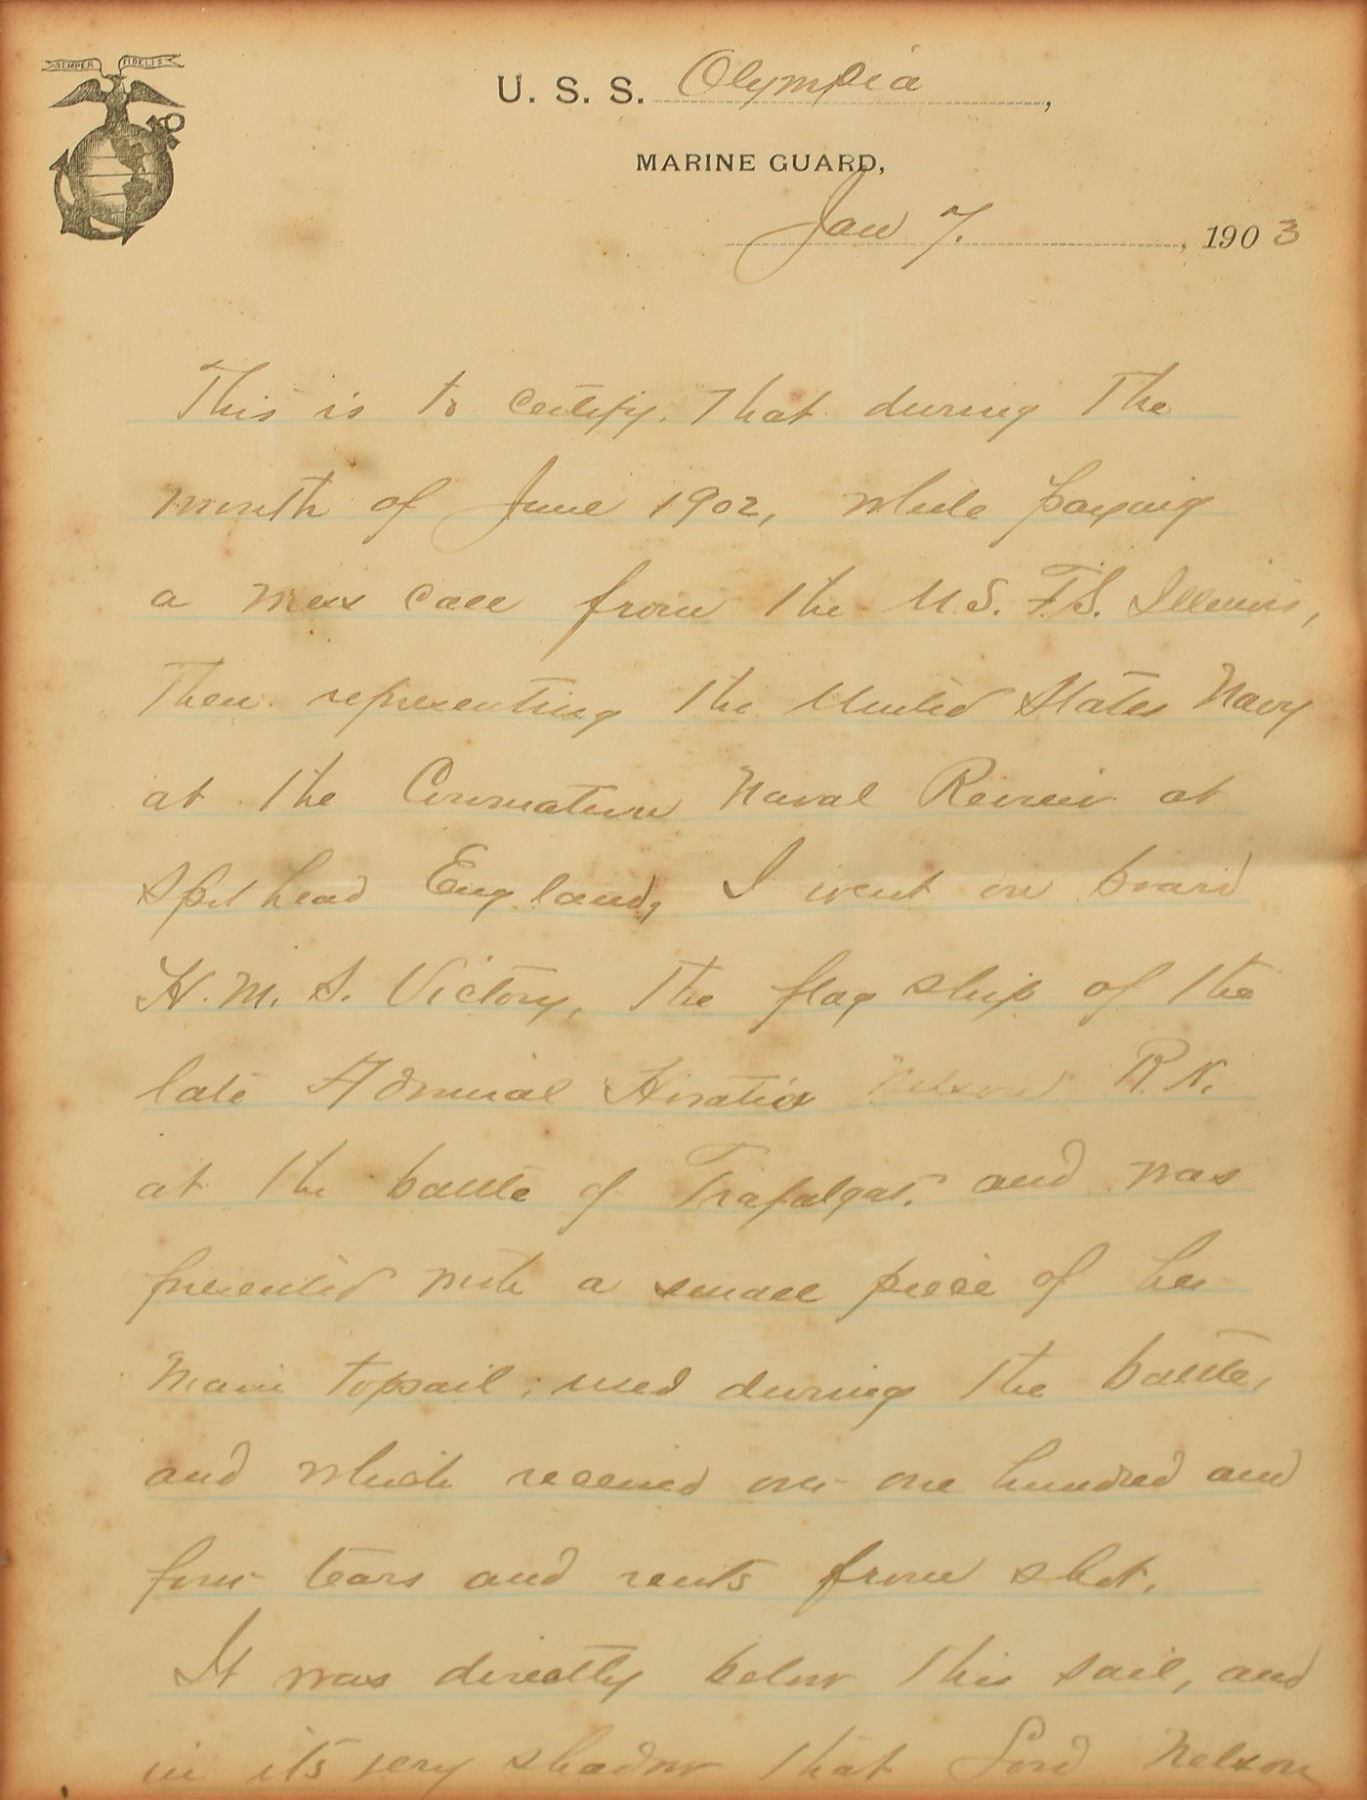 SEMPER FIDELIS
U. S. S. Olympia,
MARINE GUARD,
Jan 7. , 1903
This is to certify. That during the
month of June 1902, while paying
a mess call from the U.S.F.S. Illinois,
then representing the United States Navy
at the Coronation Naval Review at
Spithead England, I went on board
H.M.S. Victory, the flag ship of the
late Admiral Horatio Nelson R.N.
at the battle of Trafalgar. and was
presented with a small piece of her
main topsail; used during the battle,
and which received over one hundred and
four tears and rents from shot.
It was directly below this sail, and
in its very shadow that Lord Nelson